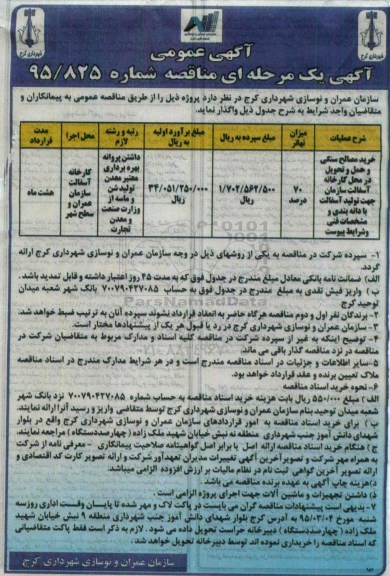 شهرداری کرج
آگهی عمومی
آگهی یک مرحله ای مناقصه شماره ۹۵/۸۲۵
سازمان عمران و نوسازی شهرداری کرج در نظر دارد پروژه ذیل را از طریق مناقصه عمومی به پیمانکاران و
متقاضیان واجد شرایط به شرح جدول ذیل واگذار نماید.
شرح عملیات
میزان تعدیل
مبلغ سپرده به ریال
مبلغ برآورد اولیه به ریال
رتبه و رشته لازم
محل اجرا
مدت قرارداد
خرید مصالح سنگی و حمل و تحویل در محل کارخانه آسفالت سازمان جهت تولید آسفالت با دانه بندی و مشخصات فنی وشرایط پیوست
۷۰ درصد
۱/۷۰۲/۵۶۲/۵۰۰ ریال
۳۴/۰۵۱/۲۵۰/۰۰۰ ریال
داشتن پروانه بهره برداری معتبر معدن تولید شن و ماسه از وزارت صنعت و معدن تجارت
کارخانه آسفالت سازمان عمران و سطح شهر
هشت ماه
۱- سپرده شرکت در مناقصه به یکی از روشهای ذیل در وجه سازمان عمران و نوسازی شهرداری کرج ارائه
گردد.
الف) ضمانت نامه بانکی معادل مبلغ مندرج در جدول فوق که به مدت ۴۵ روز اعتبار داشته و قابل تمدید باشد.
ب) واریز فیش نقدی به مبلغ مندرج در جدول فوق به حساب ۷۰۰۷۹۰۴۲۷۰۸۵ بانک شهر شعبه میدان
توحید کرج
۲- برندگان نفر اول و دوم مناقصه هرگاه حاضر به انعقاد قرارداد نشوند سپرده آنان به ترتیب ضبط خواهد شد.
۳- سازمان عمران و نوسازی شهرداری کرج در رد یا قبول هر یک از پیشنهادها مختار است.
۴- توضیح اینکه به غیر از سپرده شرکت در مناقصه کلیه اسناد و مدارک مربوط به متقاضیان شرکت در
مناقصه در نزد مناقصه گذار باقی می ماند.
۵- سایر اطلاعات و جزئیات در اسناد مناقصه مندرج است و در هر شرایط مدارک مندرج در اسناد مناقصه
ملاک تعیین برنده و عقد قرارداد خواهد بود.
۶- نحوه خرید اسناد مناقصه
الف) مبلغ ۵۵۰/۰۰۰ ریال بابت هزینه خرید اسناد مناقصه به حساب شماره ۷۰۰۷۹۰۴۲۷۰۸۵ نزد بانک شهر
شعبه میدان توحید بنام سازمان عمران و نوسازی شهرداری کرج توسط متقاضی واریز و رسید آنرا ارائه نمایند.
ب) برای خرید اسناد مناقصه به امور قراردادهای سازمان عمران و نوسازی شهرداری کرج واقع در بلوار
شهدای دانش آموز جنب شهرداری منطقه نه نبش خیابان شهید ملک زاده (چهارصددستگاه) مراجعه نمایند.
ج) هنگام خرید اسناد مناقصه ارائه اصل یا برابر اصل گواهینامه صلاحیت پیمانکاری - معرفی نامه از شرکت
به همراه مهر شرکت و تصویر آخرین آگهی تغییرات مدیران تعهدآور شرکت و ارائه تصویر کارت کد اقتصادی و
ارائه تصویر آخرین گواهی ثبت نام در نظام مالیات بر ارزش افزوده الزامی میباشد.
د) هزینه چاپ آگهی به عهده برنده مناقصه می باشد.
ذ) داشتن تجهیزات و ماشین آلات جهت اجرای پروژه الزامی است.
۷- بدیهی است پیشنهادات مناقصه گران می بایست در پاکت لاک و مهر شده تا پایان وقت اداری روز سه
شنبه مورخ ۹۵/۰۳/۰۴ به آدرس کرج بلوار شهدای دانش آموز جنب شهرداری منطقه ۹ نبش خیابان شهید
ملک زاده (چهارصددستگاه) دبیرخانه حراست تحویل داده می شود. لازم به ذکر است فقط پاکت متقاضیانی
که اسناد مناقصه را خریداری نموده اند توسط دبیرخانه تحویل خواهد شد.
سازمان عمران و نوسازی شهرداری کرج